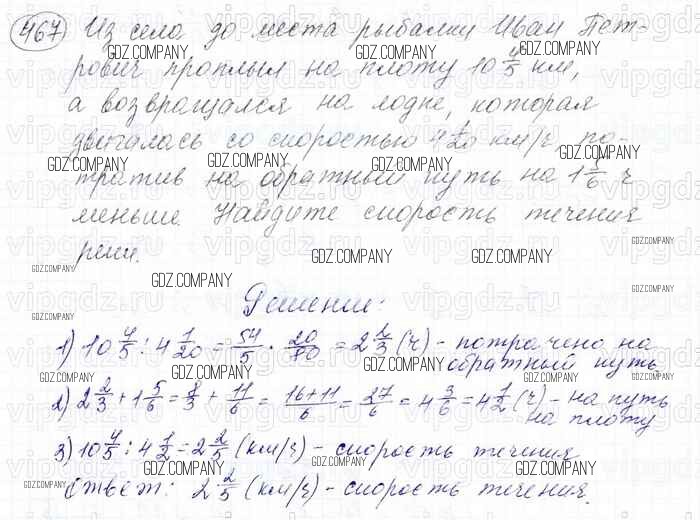 467) Из села до места рыбалки Иван Пет-
рович проплыл на плоту 10 4/5 км,
а возвращался на лодке, которая
двигалась со скоростью 4 1/20 км/ч, по-
тратив на обратный путь на 1 5/6 ч
меньше. Найдите скорость течения
реки.
Решение:
1) 10 4/5 : 4 1/20 = 54/5 · 20/80 = 2 2/3 (ч) - потрачено на
обратный путь
2) 2 2/3 + 1 5/6 = 8/3 + 11/6 = 16+11/6 = 27/6 = 4 3/6 = 4 1/2 (ч) - на путь
на плоту
3) 10 4/5 : 4 1/2 = 2 2/5 (км/ч) - скорость течения
Ответ: 2 2/5 (км/ч) - скорость течения.
GDZ.COMPANY
vipgdz.ru